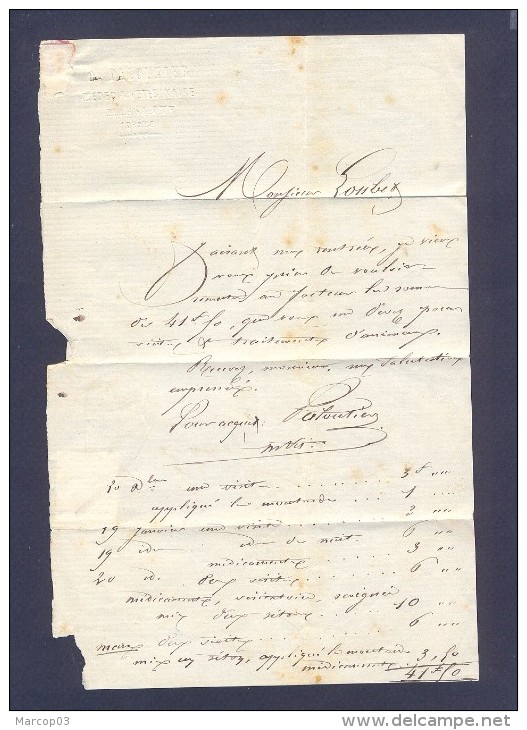 MEDECIN VETERINAIRE
Monsieur Loubet
Faisant mes rentrées, je viens
vous prier de vouloir
remettre au facteur la somme
de 41f 50, que vous me devez pour
visites & traitements d'animaux.
Recevez, monsieur, mes salutations
empressées.
Pour acquit
20 Xbre une visite . . . . . . 3f ""
appliqué la moutarde . . . . . 1 ""
19 janvier une visite . . . . . 3 ""
19 idem idem de nuit . . . . 6 ""
médicaments . . . . . . 3 ""
20 id. deux visites . . . . . . 6 ""
médicaments, vésicatoire, saignée
mis deux sétons . . . . . 10 ""
mars deux visites . . . . . . 6 ""
mis un séton, appliqué la moutarde
médicaments 3,50
41f 50
Marcop03
www.delcampe.net